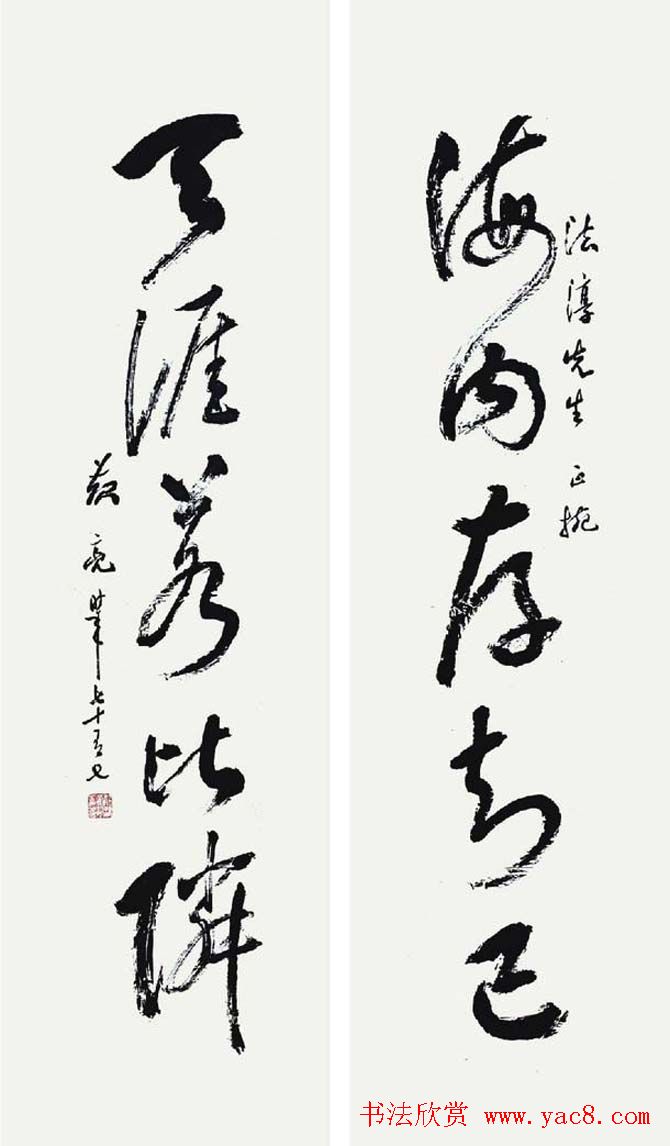 海内存知己
法淳先生 正
天涯若比隣
亮 時年七十
书法欣赏 www.yac8.com